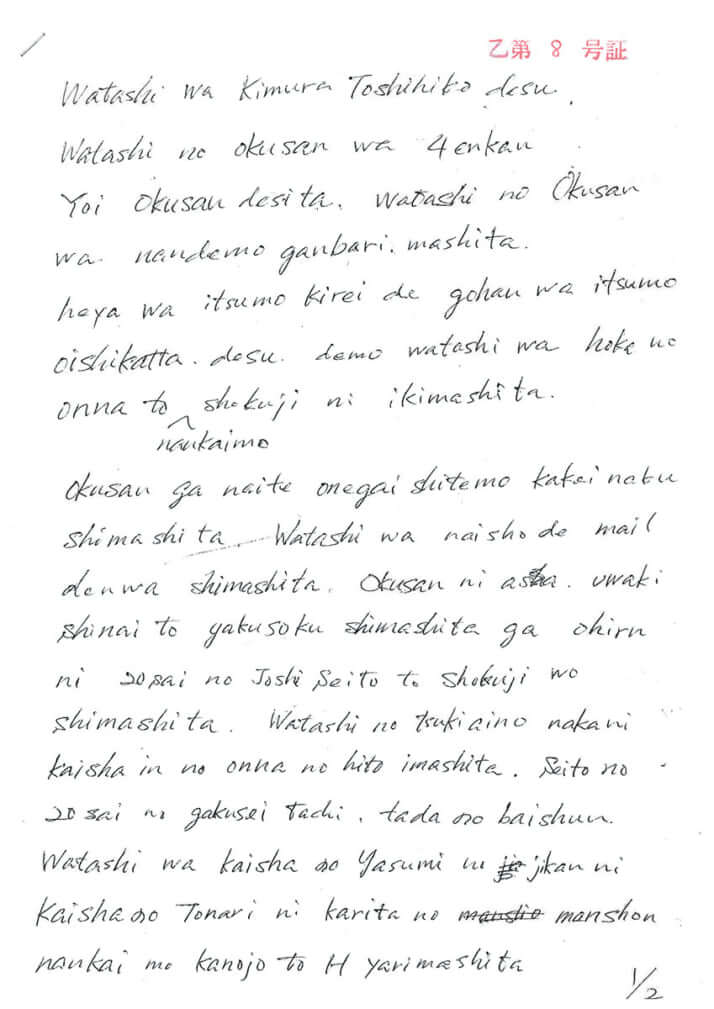 乙第 8 号証
Watashi wa Kimura Toshihiko desu.
Watashi no okusan wa 4enkan
Yoi Okusan desita. Watashi no Okusan
wa. nandemo ganbari. mashita.
heya wa itsumo kirei de gohan wa itsumo
oishikatta. desu. demo watashi wa hoka no
onna to shokuji ni ikimashita.
nankaimo
Okusan ga naite onegai shitemo kakei naku
shimashita. Watashi wa naisho de mail
denwa shimashita. Okusan ni asa. uwaki
shinai to yakusoku shimashita ga ohiru
ni 20sai no Joshi Seito to Shokuji wo
shimashita. Watashi no tsukiaino naka ni
kaisha in no onna no hito imashita. Seito no
20 sai no gakusei tachi. tada no baishun.
Watashi wa kaisha no Yasumi no jikan ni
Kaisha no Tonari ni karita no manshon
nankai mo kanojo to H yarimashita
1/2